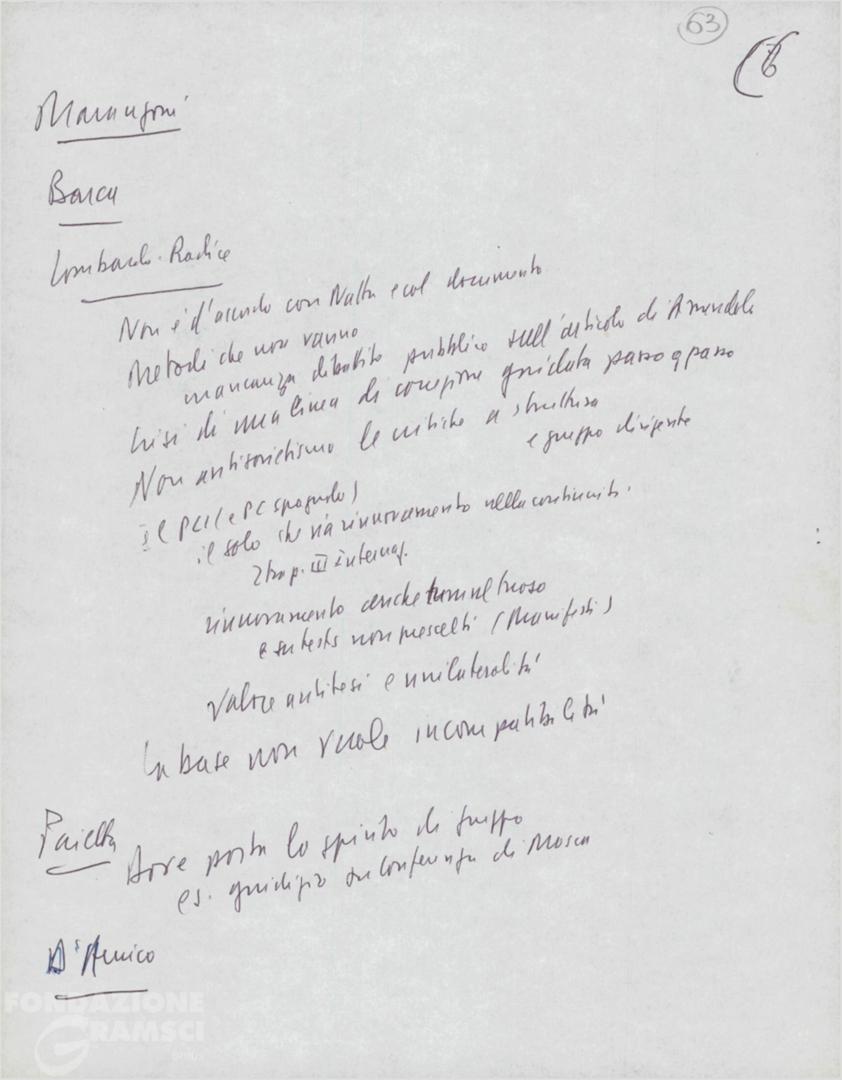 63
6
Marangoni
Barca
Lombardo-Radice
Non è d'accordo con Natta e col documento
Metodi che non vanno
mancanza dibattito pubblico sull'articolo di Amendola
Crisi di una linea di coesione guidata passo a passo
Non antisovietismo le critiche a struttura
e gruppo dirigente
il PCI (e PC spagnolo)
il solo che via rinnovamento nella continuità.
III internaz.
rinnovamento anche tumultuoso
e su testi non prescelti (Manifesto)
Valore antitesi e unilateralità
La base non vuole incompatibilità
Paietta
Dove porta lo spirito di gruppo
es. giudizio su Conferenza di Mosca
D'Amico
FONDAZIONE
GRAMSCI
onlus